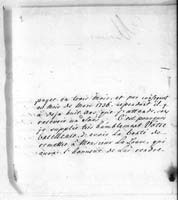 payer en trois mois, et par conséquent
au mois de Mars 1736. cependant il y
a deja huit mois que j'attends, sans
recevoir un sou. C'est pourquoi
je supplie très humblement Votre
Excellence, d'avoir la bonté de
remettre à Monsieur Le
aura l'honneur de lui rendre